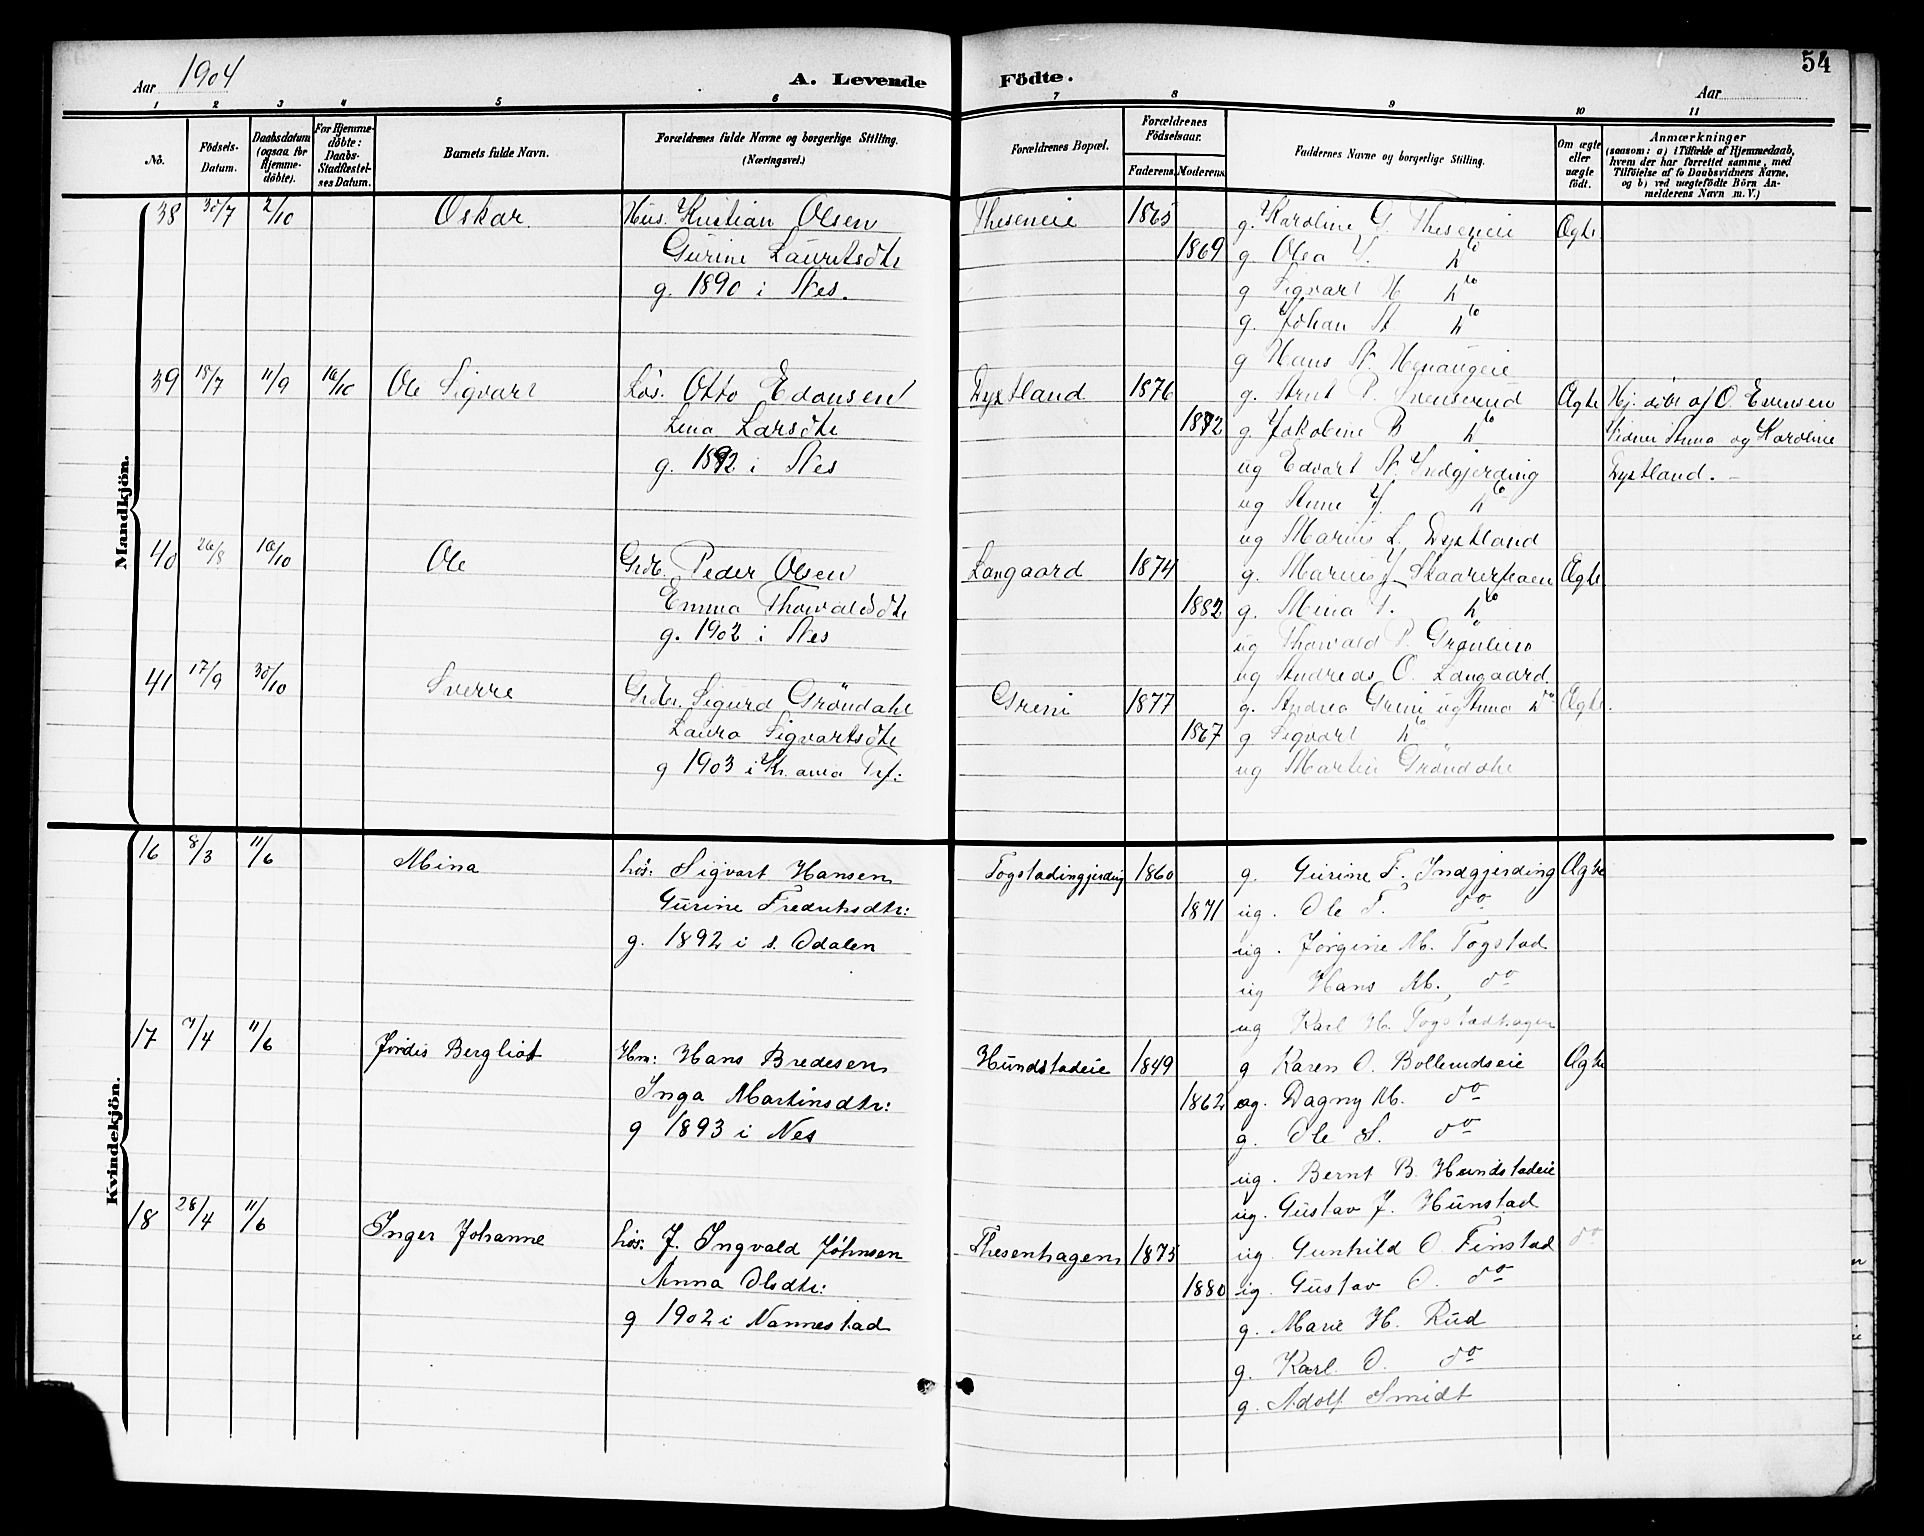 54
Aar 1904 A. Levende Födte. Aar
1 2 3 4 5 6 7 8 9 10 11
No.
Födsels-Datum.
Daabsdatum (ogsaa for Hjemme-döbte).
For Hjemme-döbte: Daabs-Stadfæstel-ses Datum.
Barnets fulde Navn.
Forældrenes fulde Navne og borgerlige Stilling. (Næringsvei.)
Forældrenes Bopæl.
Forældrenes Födselsaar.
Faderens. Moderens.
Faddernes Navne og borgerlige Stilling.
Om ægte eller uægte födt.
Anmærkninger
(saasom: a) i Tilfælde af Hjemmedaab, hvem der har forrettet samme, med Tilföielse af to Daabsvidners Navne, og b) ved uægtefödte Börn An-melderens Navn m. V.)
Mandkjön.
38 30/7 2/10 Oskar. Hus. Kristian Olsen Theseneie 1865 g. Karoline G. Theseneie Ægte
Gurine Lauritsdtr 1869 g. Olea
g. 1890 i Nes. g Sigvart H
g. Johan A
g Hans A.
39 18/7 11/9 16/10 Ole Sigvart Løs. Otto Edvusen Dystland 1876 g. Arnt P. Svenserud Ægte Hj. døbt af O. Evensen
Lina Larsdtr 1872 g. Jakobine B Vidner Anna og Karoline
g. 1892 i Nes ug Edvart A. Indgjerding Dystland.
ug Anne
ug Marius L. Dystland
40 26/8 16/10 Ole Grdb. Peder Olsen Langaard 1874 g. Marius Ægte
Emma Thorvaldsdtr 1882 g. Mina T.
g. 1902 i Nes ug Thorvald P. Grønlien
ug Andreas O. Langaard
41 17/9 30/10 Sverre Grdbr. Sigurd Gröndahl Greni 1877 g. Andrea Greni ug Anna do Ægte.
Laura Sigvartsdtr 1867 g Sigvart do
g 1903 i Kr.ania Trf. ug Martin Gröndahl
Kvindekjön.
16 8/3 11/6 Mina Løs: Sigvart Hansen Togstadingjerding 1860 g. Gurine F. Indgjerding Ægte
Gurine Fredriksdtr: 1871 ug. Ole F. do
g. 1892 i s. Odalen ug. Jørgine M. Togstad
ug Hans M. do
ug Karl H. Togstadhagen
17 7/4 11/6 Jordis Bergliot Hm: Hans Bredesen Hundstadeie 1849 g Karen O. Bollerudseie Ægte
Inga Martinsdtr: 1862 ug. Dagny M. do
g 1893 i Nes g. Ole S. do
ug. Bernt B. Hundstadeie
ug. Gustav J. Hunstad
18 28/4 11/6 Inger Johanne Løs: J. Ingvald Johnsen Thesenhagen 1875 ug. Gunhild O. Finstad do
Anna Olsdtr: 1880 ug. Gustav O. do
g 1902 i Nannestad g. Marie H. Rud
g. Karl O. do
g. Adolf Smidt